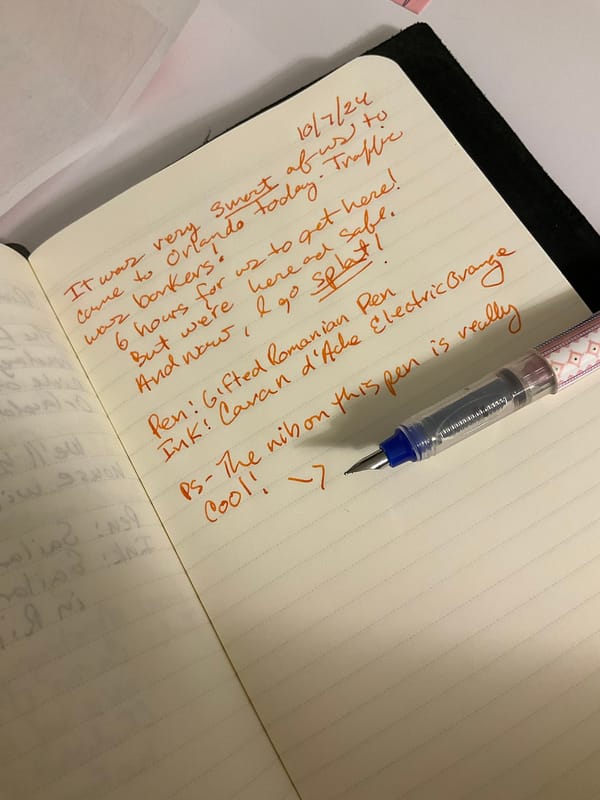 10/7/24
It was very smart of us to
came to Orlando today. Traffic
was bonkers!
6 hours for us to get here!
But were here ad safe.
And now, I go splat!
Pen: Gifted Romanian Pen
Ink: Caran d'Ache Electric Orange
PS- The nib on this pen is really
cool! →
We'll
house wi
Pen: Sailo
Ink: Sailo
in Ri